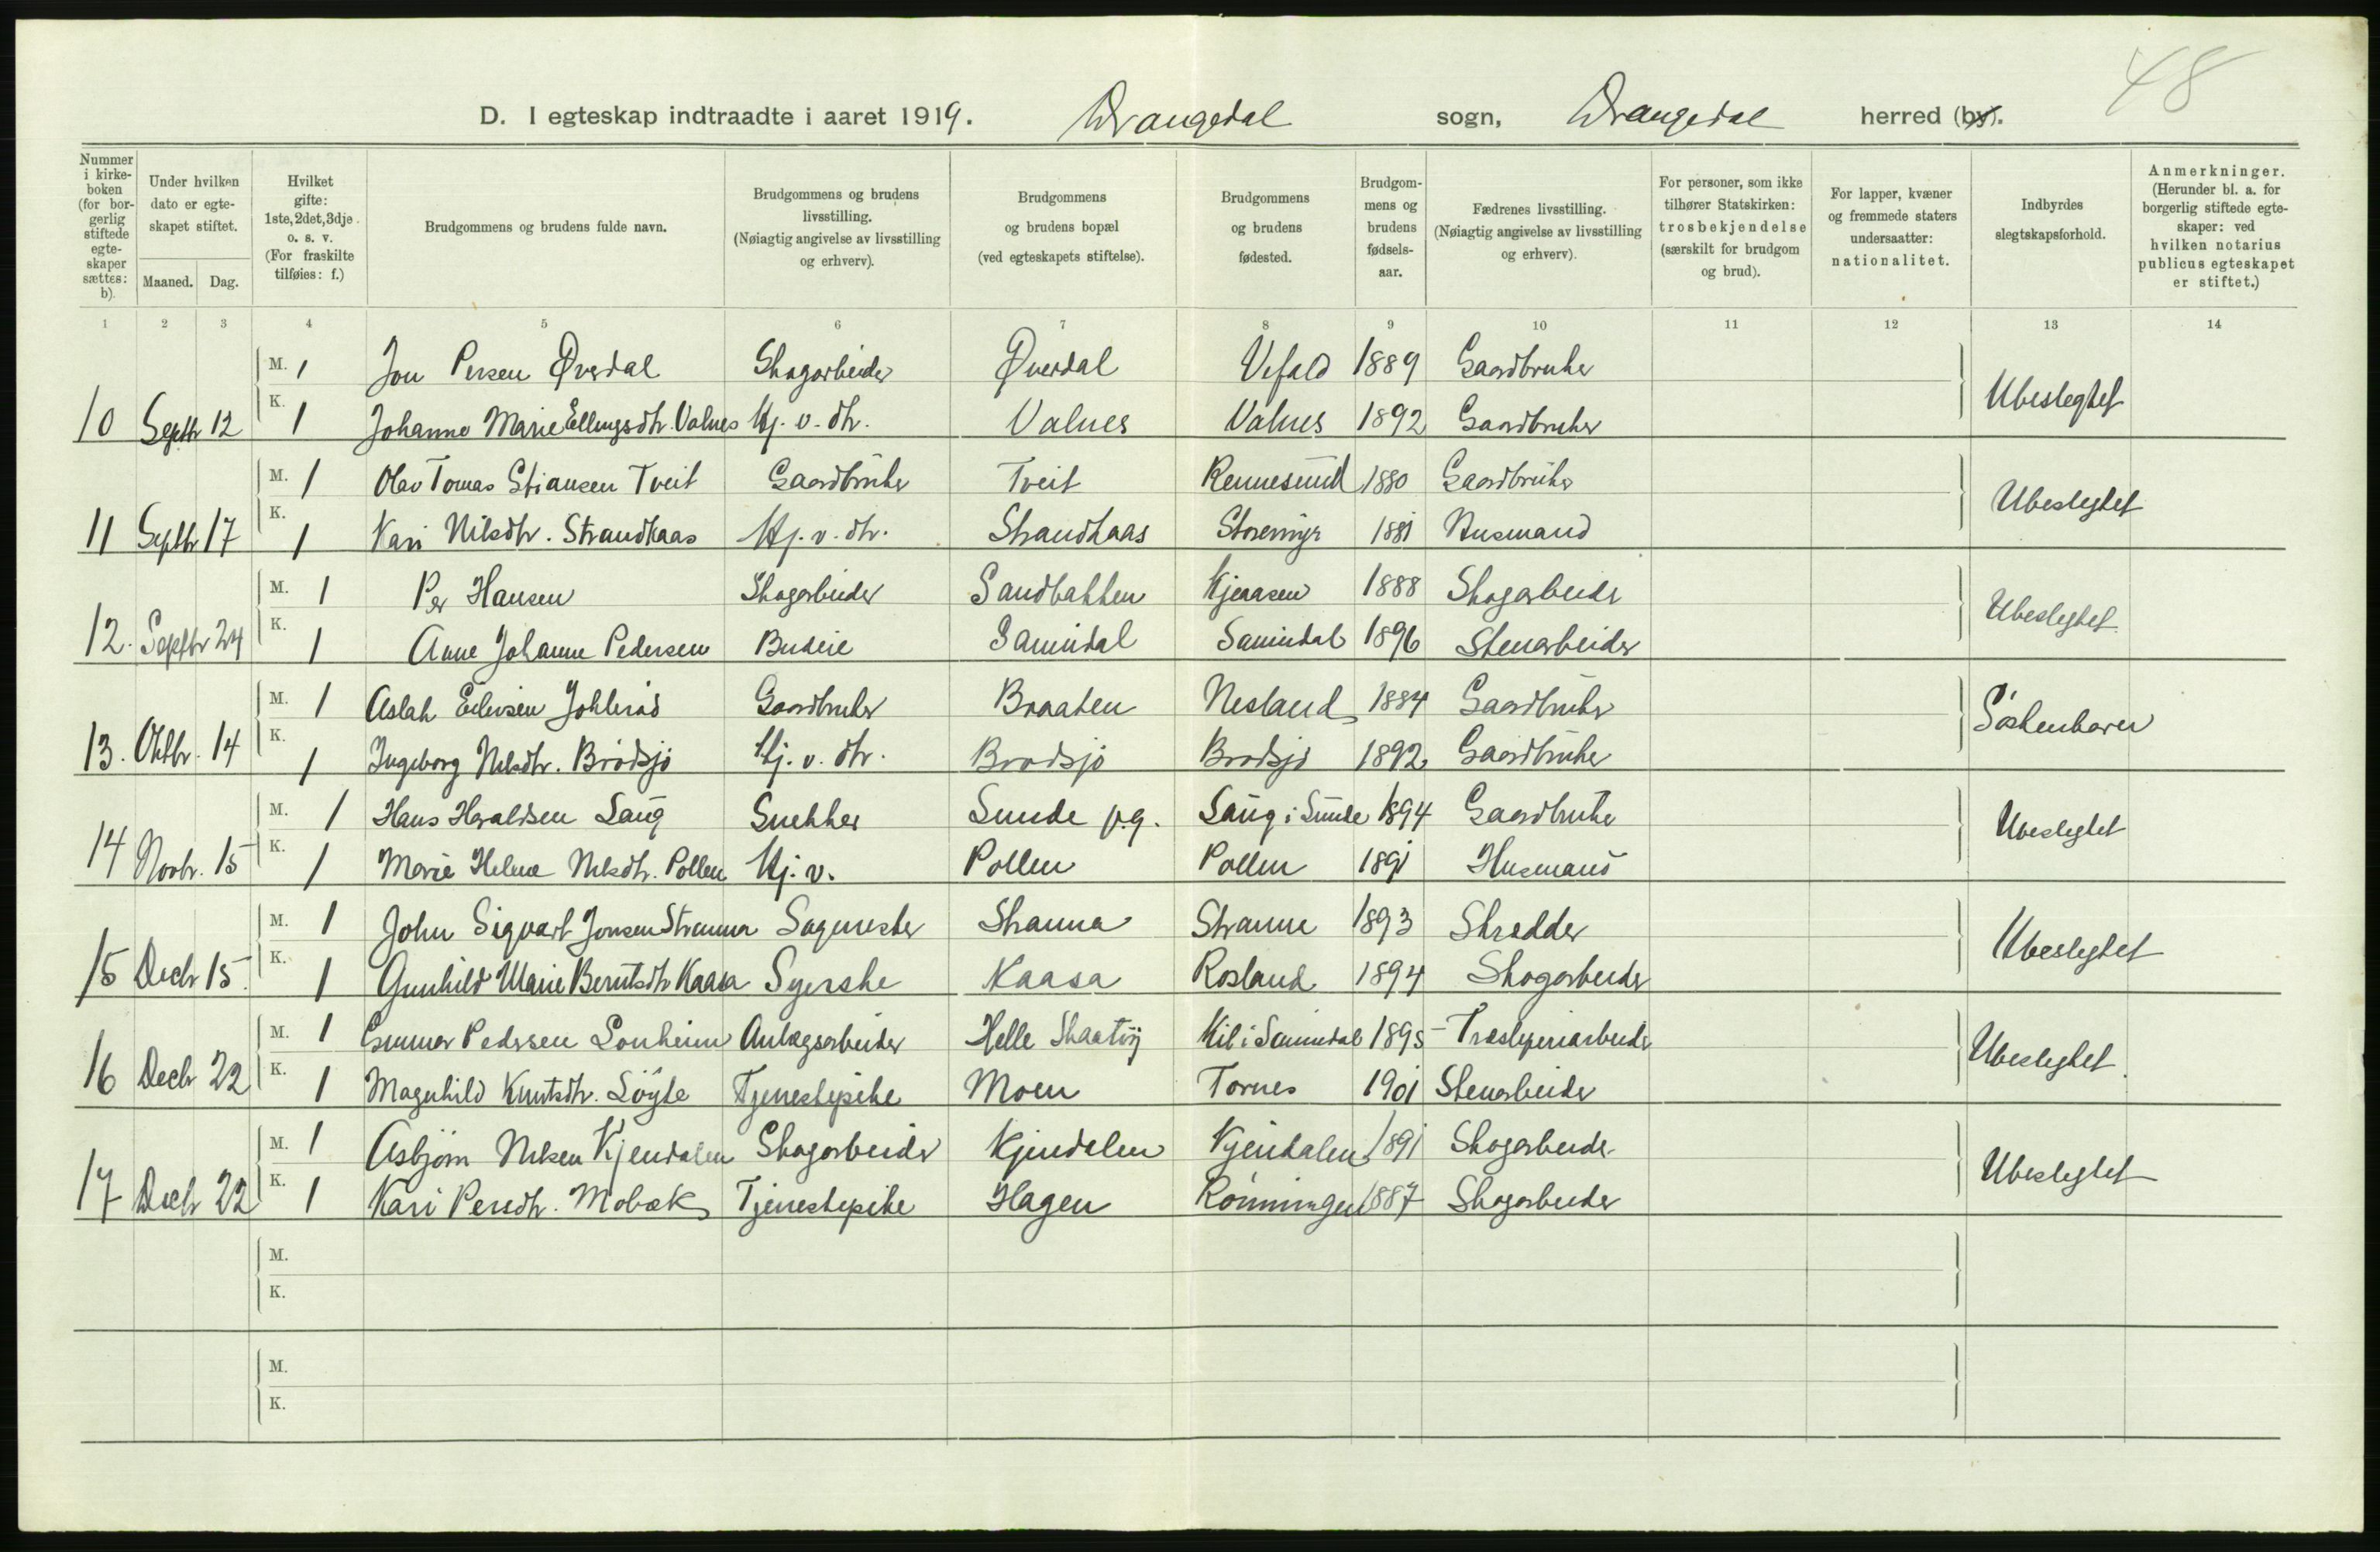 48
D. I egteskap indtraadte i aaret 1919. Drangedal sogn, Drangedal herred (by).
Nummer i kirkeboken (for borgerlig stiftede egteskaper sættes: b).
Under hvilken dato er egteskapet stiftet.
Maaned. Dag.
Hvilket gifte: 1ste, 2det, 3dje o. s. v. (For fraskilte tilføies: f.)
Brudgommens og brudens fulde navn.
Brudgommens og brudens livsstilling. (Nøiagtig angivelse av livsstilling og erhverv).
Brudgommens og brudens bopæl (ved egteskapets stiftelse).
Brudgommens og brudens fødested.
Brudgommens og brudens fødselsaar.
Fædrenes livsstilling. (Nøiagtig angivelse av livsstilling og erhverv).
For personer, som ikke tilhører Statskirken: trosbekjendelse (særskilt for brudgom og brud).
For lapper, kvæner og fremmede staters undersaatter: nationalitet.
Indbyrdes slegtskapsforhold.
Anmerkninger. (Herunder bl. a. for borgerlig stiftede egteskaper: ved hvilken notarius publicus egteskapet er stiftet.)
1 2 3 4 5 6 7 8 9 10 11 12 13 14
M. 1 Jon Persen Øverdal Skogarbeider Øverdal Vefald 1889 Gaardbruker
10 Septbr 12 K. 1 Johanne Marie Ellingsdtr. Valnes Hj. v. dtr. Valnes Valnes 1892 Gaardbruker Ubeslegtet
M. 1 Olav Tomas Stiansen Tveit Gaardbruker Tveit Rennesund 1880 Gaardbruker
11 Septbr 17 K. 1 Kari Nilsdtr. Strandkaas Hj. v. dtr. Strandkaas Storemyr 1881 Husmand Ubeslegtet
M. 1 Per Hansen Skogarbeider Sandbakken Kjeaasen 1888 Skogarbeider
12. Septbr 24 K. 1 Anne Johanne Pedersen Budeie Sannidal Sannidal 1896 Stenarbeider Ubeslegtet.
M. 1 Aslak Eilevsen Gaardbruker Braaten Nesland 1884 Gaardbruker
13. Oktbr. 14 K. 1 Ingeborg Nilsdtr. Brödsjö Hj. v. dtr. Brödsjö Brödsjö 1892 Gaardbruker Söskenbarn
M. 1 Hans Haraldsen Laug Snekker Lunde p.g. Laug i Lunde 1894 Gaardbruker
14 Novbr. 15 K. 1 Marie Helene Nilsdtr. Pollen Hj. v. Pollen Pollen 1891 Husmand Ubeslegtet
M. 1 John Sigvart Jonsen Stranna Sagmester Stranna Stranna 1893 Skredder
15 Decbr 15. K. 1 Gunhild Marie Berntsdtr Kaasa Syerske Kaasa Rosland 1894 Skogarbeider Ubeslegtet
M. 1 Gunnar Pedersen Lonheim Anlægsarbeider Helle Skaatöy Kil i Sannidal 1895 Træsliperiarbeider
16 Decbr 22 K. 1 Magnhild Knutsdtr. Löyte Tjenestepike Moen Tornes 1901 Stenarbeider Ubeslegtet.
M. 1 Asbjörn Nilsen Kjendalen Skogarbeider Kjendalen Kjendalen 1891 Skogarbeider
17 Decbr 22 K. 1 Kari Persdtr. Mobæk Tjenestepike Hagen Rönningen 1887 Skogarbeider Ubeslegtet
M.
K.
M.
K.